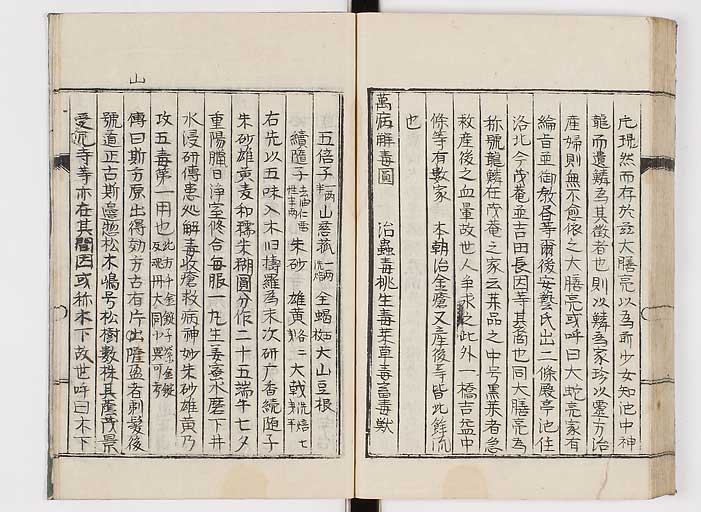 片琨然而存於玆大膳亮以為前少女知池中神
龍而遺鱗為其徴者也則以鱗為家珍以霊方治
産婦則無不愈依之大膳亮或呼曰大蛇亮家有
綸旨並御教書等爾後安藝氏出二條殿亭池住
洛北今茂菴並吉田長因等其裔也同大膳亮為
称號龍鱗在茂菴之家云其品之中号黒薬者急
救産後之血暈故世人争求之此外一橋吉益中
條等有數家 本朝治金瘡又産後等皆此餘流
也
萬病解毒圓 治蟲毒桃生毒菜草毒畜毒獣
五倍子 山慈菰 全蝎 大山豆根
續隨子 朱砂 雄黄 大戟
右先以五味入木臼擣羅為末次研麝香續随子
朱砂雄黄和糯米糊圓分作二十五端午七夕
重陽臘日浄室修合毎服一丸生姜蜜水磨下井
水浸研傳患処解毒收瘡救病神妙朱砂雄黄乃
攻五毒第一用也
傳曰斯方原出得効方古有片岡隆盈者剃髪後
號道正古斯邊愍松木嶋号松樹數株其蔭茂景
愛宕寺等亦在其間因或称木下故世呼曰木下
山